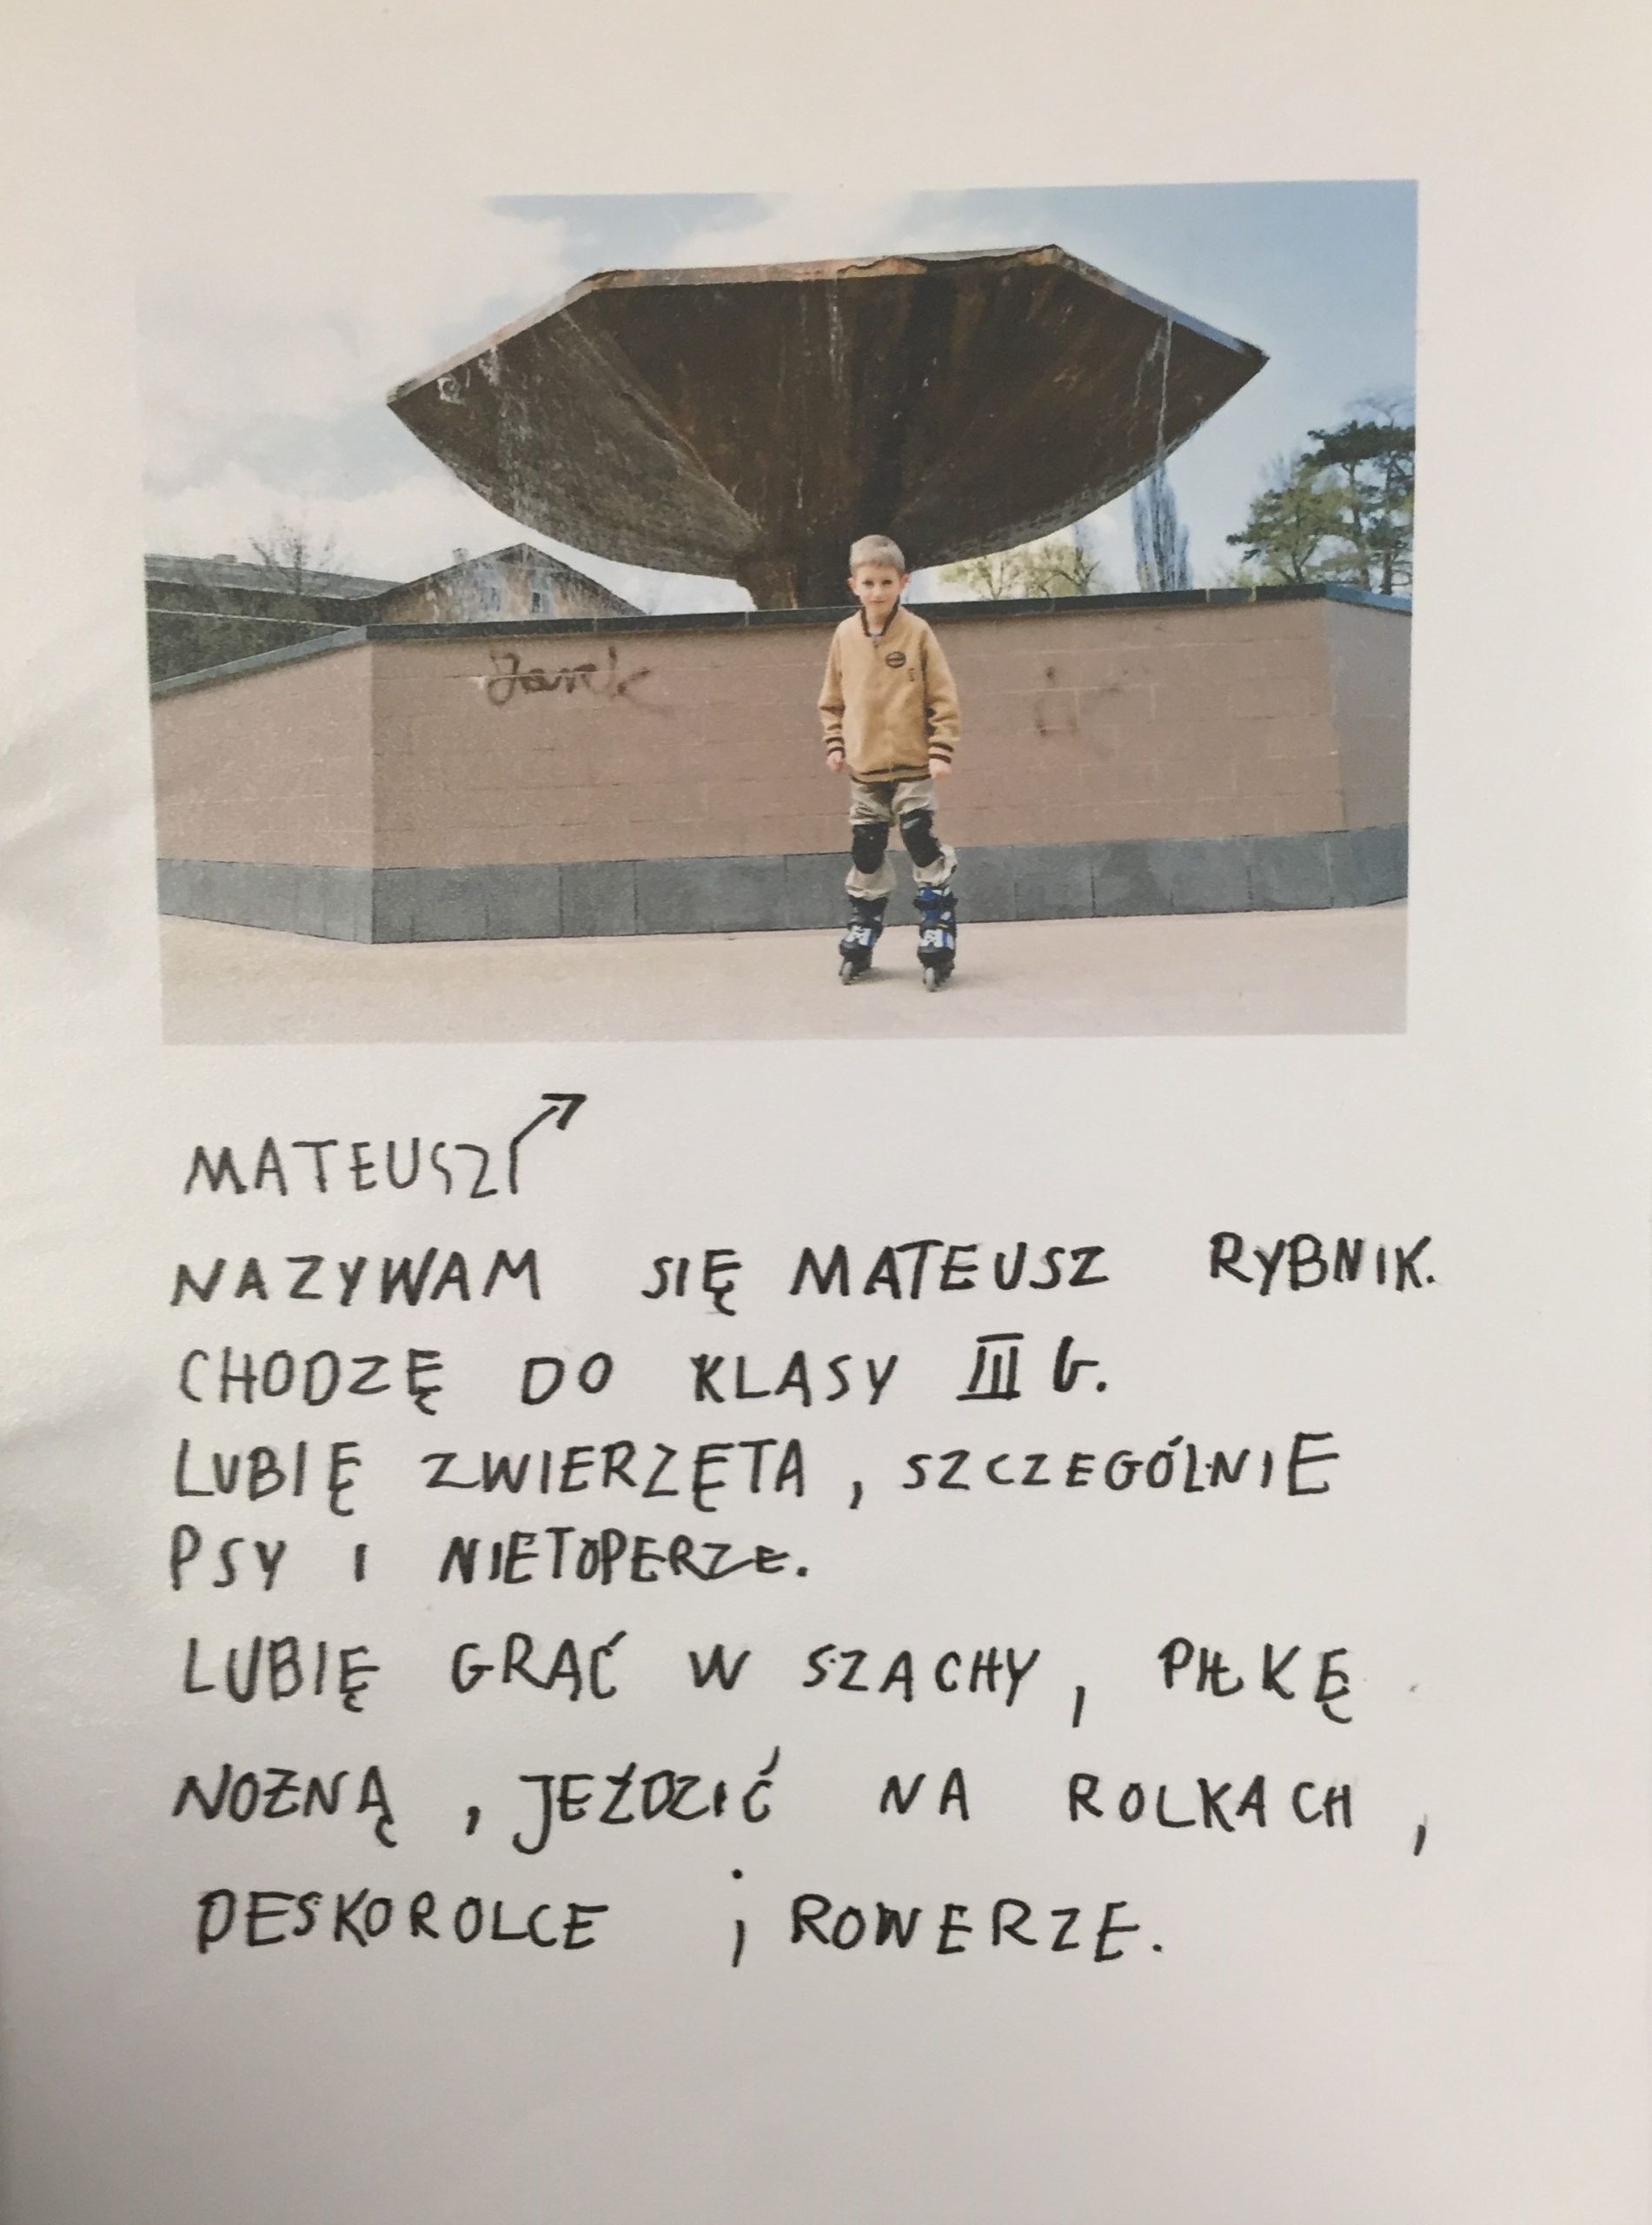 Jarek
MATEUSZ
NAZYWAM SIĘ MATEUSZ RYBNIK.
CHODZĘ DO KLASY III G.
LUBIĘ ZWIERZĘTA, SZCZEGÓLNIE
PSY I NIETOPERZE.
LUBIĘ GRAĆ W SZACHY, PIŁKĘ
NOŻNĄ, JEŹDZIĆ NA ROLKACH,
DESKOROLCE i ROWERZE.